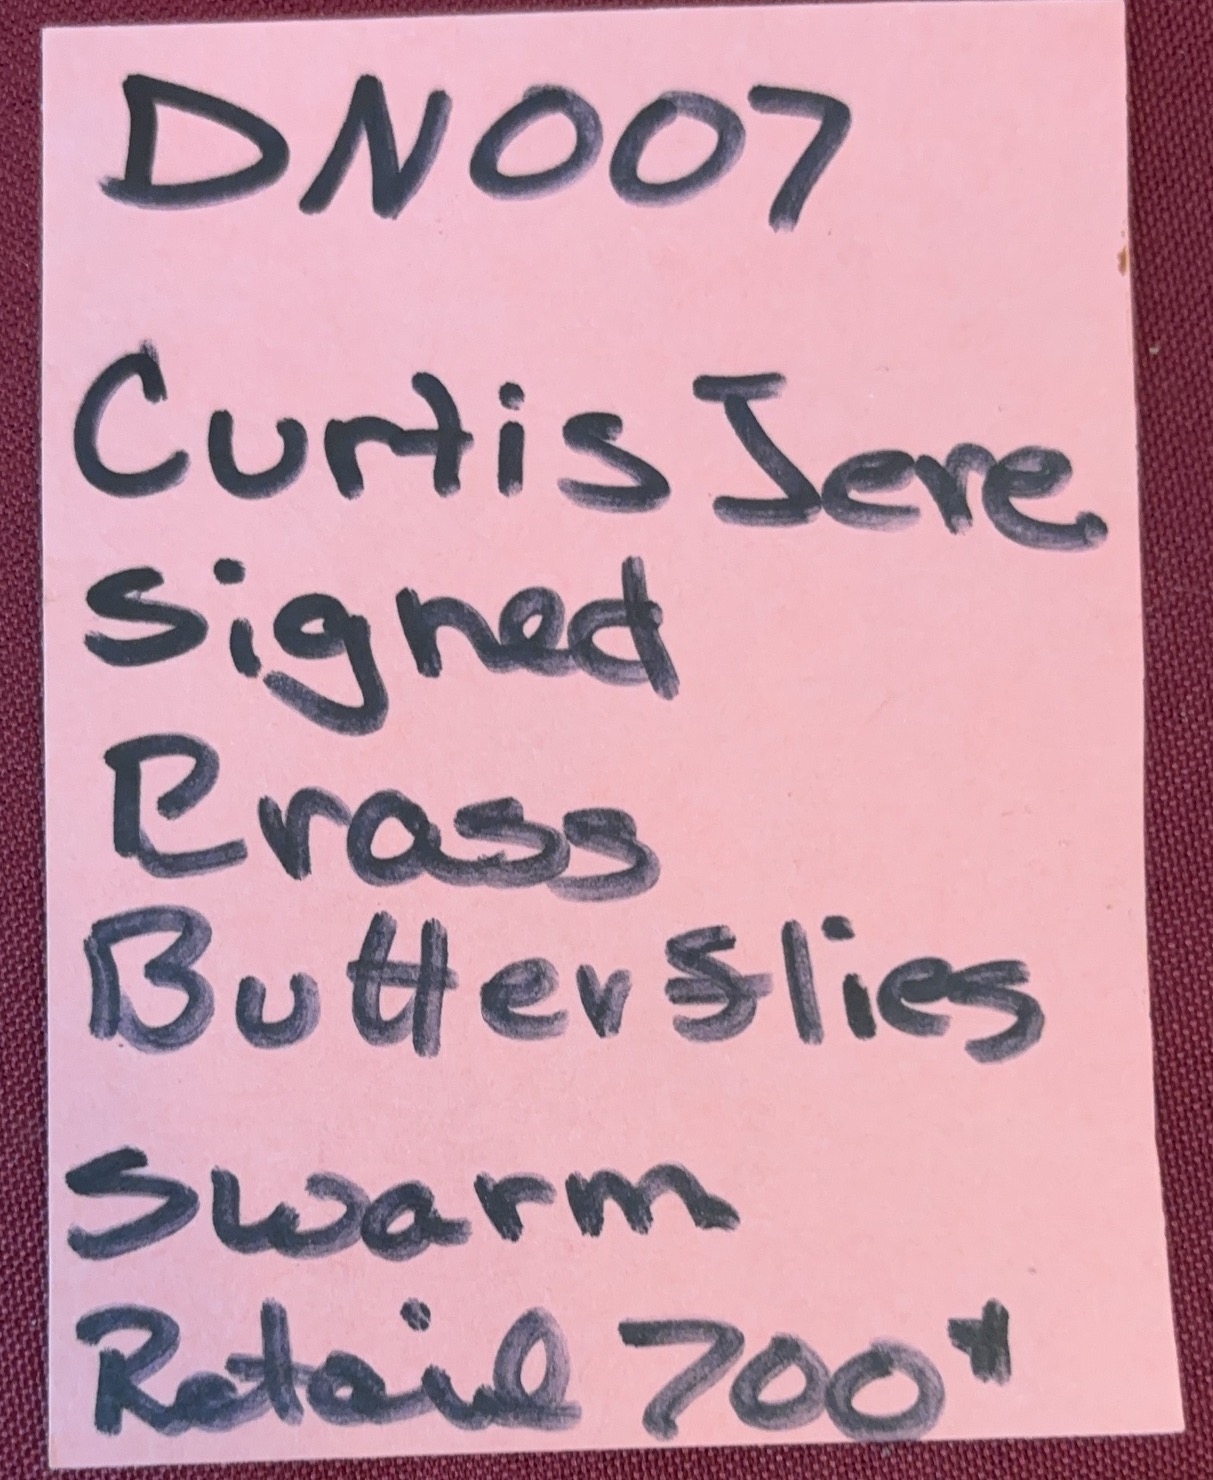 DN007
Curtis Jere
signed
Brass
Butterflies
Swarm
Retail 700+